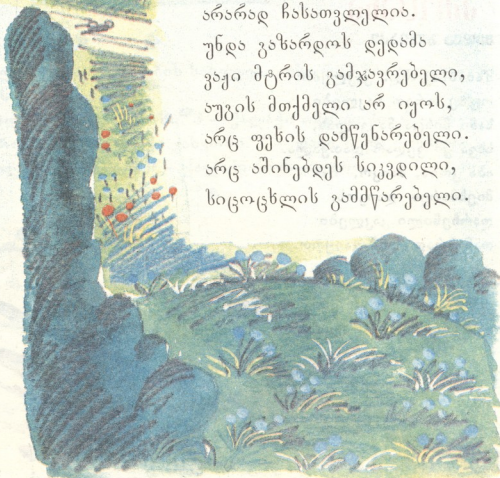 არარად ჩასათვლელია.
უნდა გაზარდოს დედამა
ვაჟი მტრის გამჯავრებელი,
აუგის მთქმელი არ იყოს,
არც ფეხის დამწენარებელი.
არც აშინებდეს სიკვდილი,
სიცოცხლის გამმწარებელი.